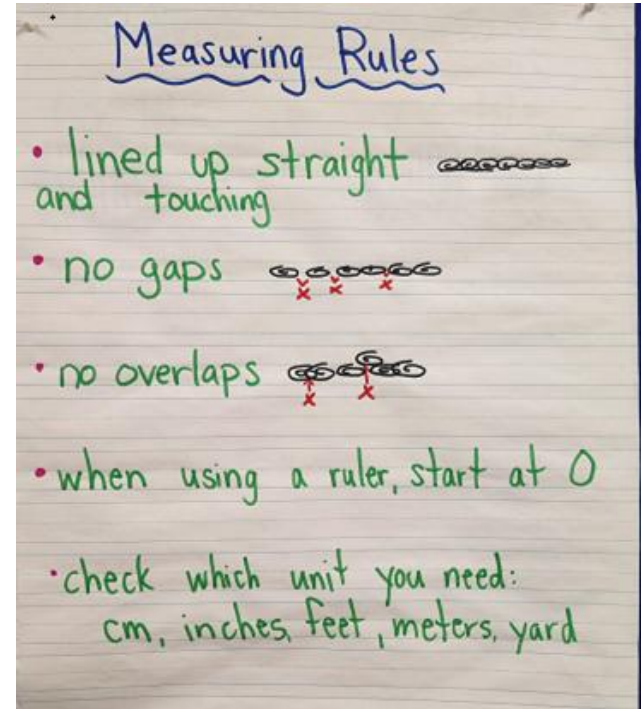 Measuring Rules
• lined up straight
and touching
• no gaps
x x x
• no overlaps
x x
• when using a ruler, start at 0
• check which unit you need:
cm, inches, feet, meters, yard